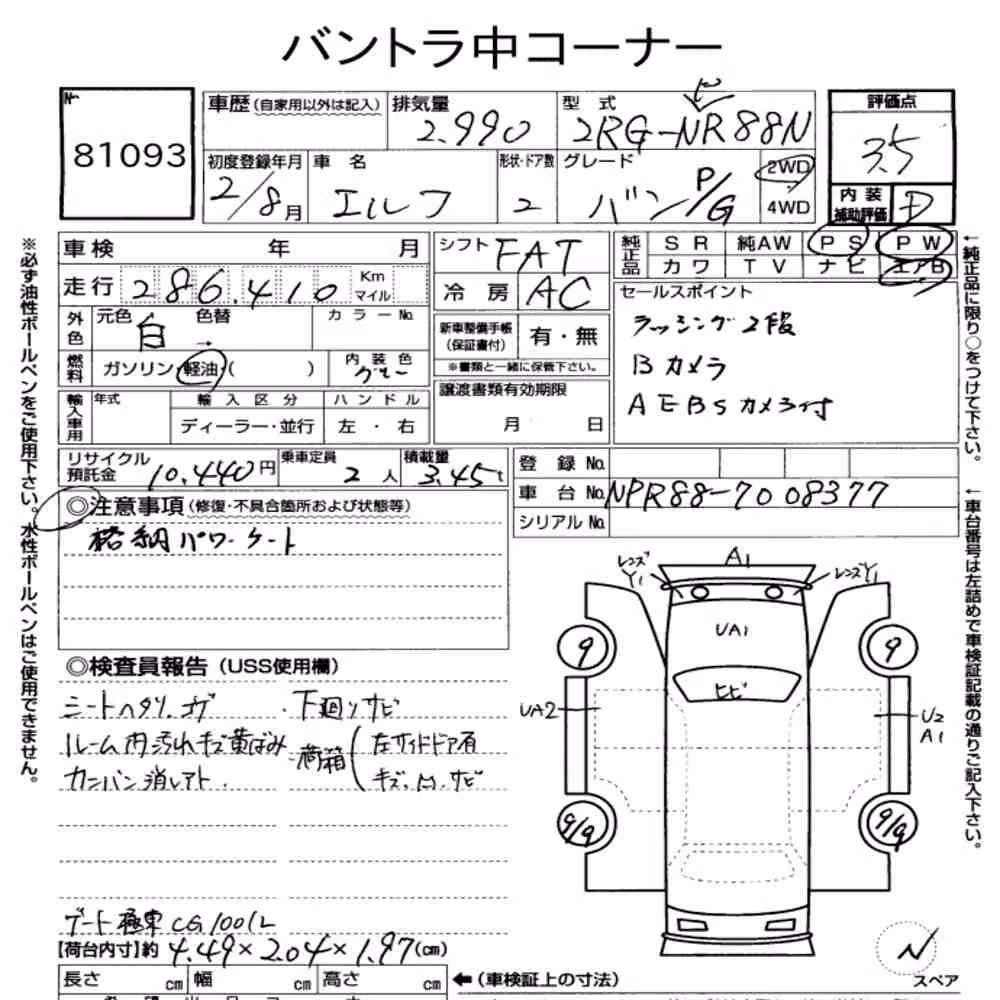 バントラ中コーナー
No.
81093
車歴(自家用以外は記入) 排気量 2.990 型式 2RG-NR88N ピ
初度登録年月 2/8月 車名 エルフ 形状・ドア数 2 グレード バン P/G 2WD 4WD
評価点 3.5
内装補助評価 D
車検 年 月
走行 286.410 Km マイル
外色 元色 白 色替 → カラーNo.
燃料 ガソリン・軽油・( ) 内装色 グレー
輸入車用 年式 輸入区分 ディーラー・並行 ハンドル 左・右
シフト FAT
冷房 AC
新車整備手帳(保証書付) 有・無
※書類と一緒に保管下さい。
譲渡書類有効期限 月 日
純正品 SR 純AW PS PW
カワ TV ナビ エアB
セールスポイント
ラッシング2段
Bカメラ
AEBSカメラ付
リサイクル預託金 10.440円 乗車定員 2人 積載量 3.45t
登録No.
車台No. NPR88-7008377
シリアルNo.
◎注意事項(修復・不具合箇所および状態等)
格納パワーゲート
◎検査員報告(USS使用欄)
シートヘタリ、コゲ ・下廻りサビ
ルーム内汚れキズ黄ばみ ・荷箱(左サイドドア有
カンバン消しアト、 キズ、凹、サビ
ゲート極東 CG1001L
【荷台内寸】約 4.49×2.04×1.97(cm)
長さ cm 幅 cm 高さ cm ←(車検証上の寸法)
A1
レンズY1 レンズY1
UA1
ヒビ
9 9
UA2
U2
A1
9/9 9/9
スペア
※必ず油性ボールペンをご使用下さい。水性ボールペンはご使用できません。
←純正品に限り○をつけて下さい。
←車台番号は左詰めで車検証記載の通りご記入下さい。